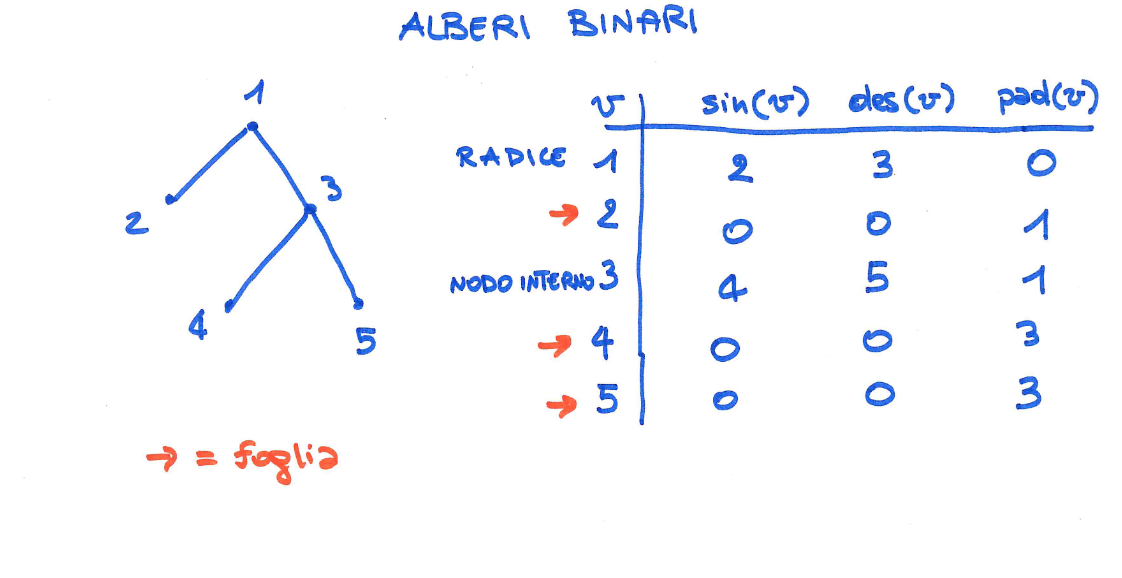 ALBERI BINARI
1
2
3
4
5
→ = foglia
v sin(v) des(v) pad(v)
RADICE 1 2 3 0
→ 2 0 0 1
NODO INTERNO 3 4 5 1
→ 4 0 0 3
→ 5 0 0 3